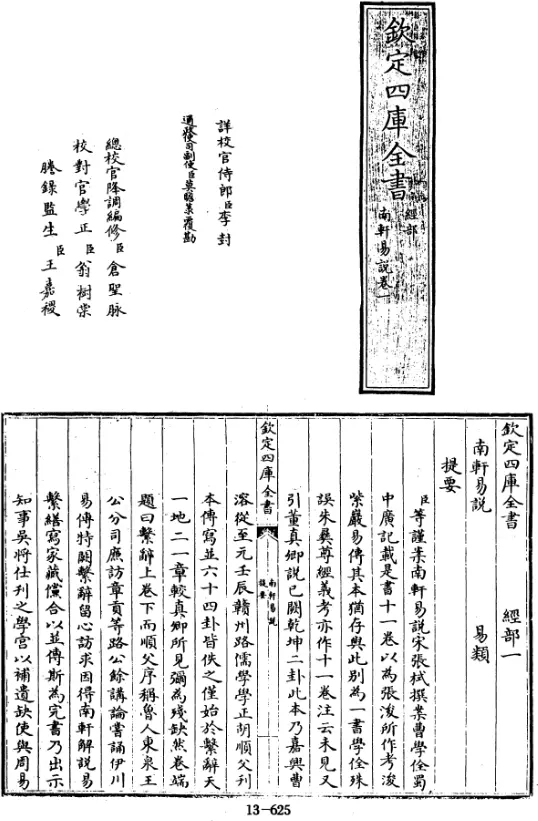 欽定四庫全書
經部
南軒易說卷一
詳校官侍郎臣李封
通政使司副使臣莫瞻菉覆勘
總校官降調編修臣倉聖脉
校對官學正臣翁樹棠
謄錄監生臣王嘉禝
欽定四庫全書 經部一
南軒易說 易類
提要
臣等謹案南軒易說宋張栻撰案曹學佺蜀
中廣記載是書十一卷以為張浚所作考浚
紫巖易傳其本猶存與此別為一書學佺殊
誤朱彝尊經義考亦作十一卷注云未見又
引董真卿說已闕乾坤二卦此本乃嘉興曹
欽定四庫全書
南軒易說
提要
溶從至元壬辰贛州路儒學學正胡順父刊
本傳寫並六十四卦皆佚之僅始於繫辭天
一地二一章較真卿所見彌為殘缺然卷端
題曰繫辭上卷下而順父序稱魯人東泉王
公分司廉訪章貢等路公餘講論嘗誦伊川
易傳特闕繫辭留心訪求因得南軒解說易
繫繕寫家藏儻合以並傳斯為完書乃出示
知事吳將仕刊之學宮以補遺缺使與周易
13-625